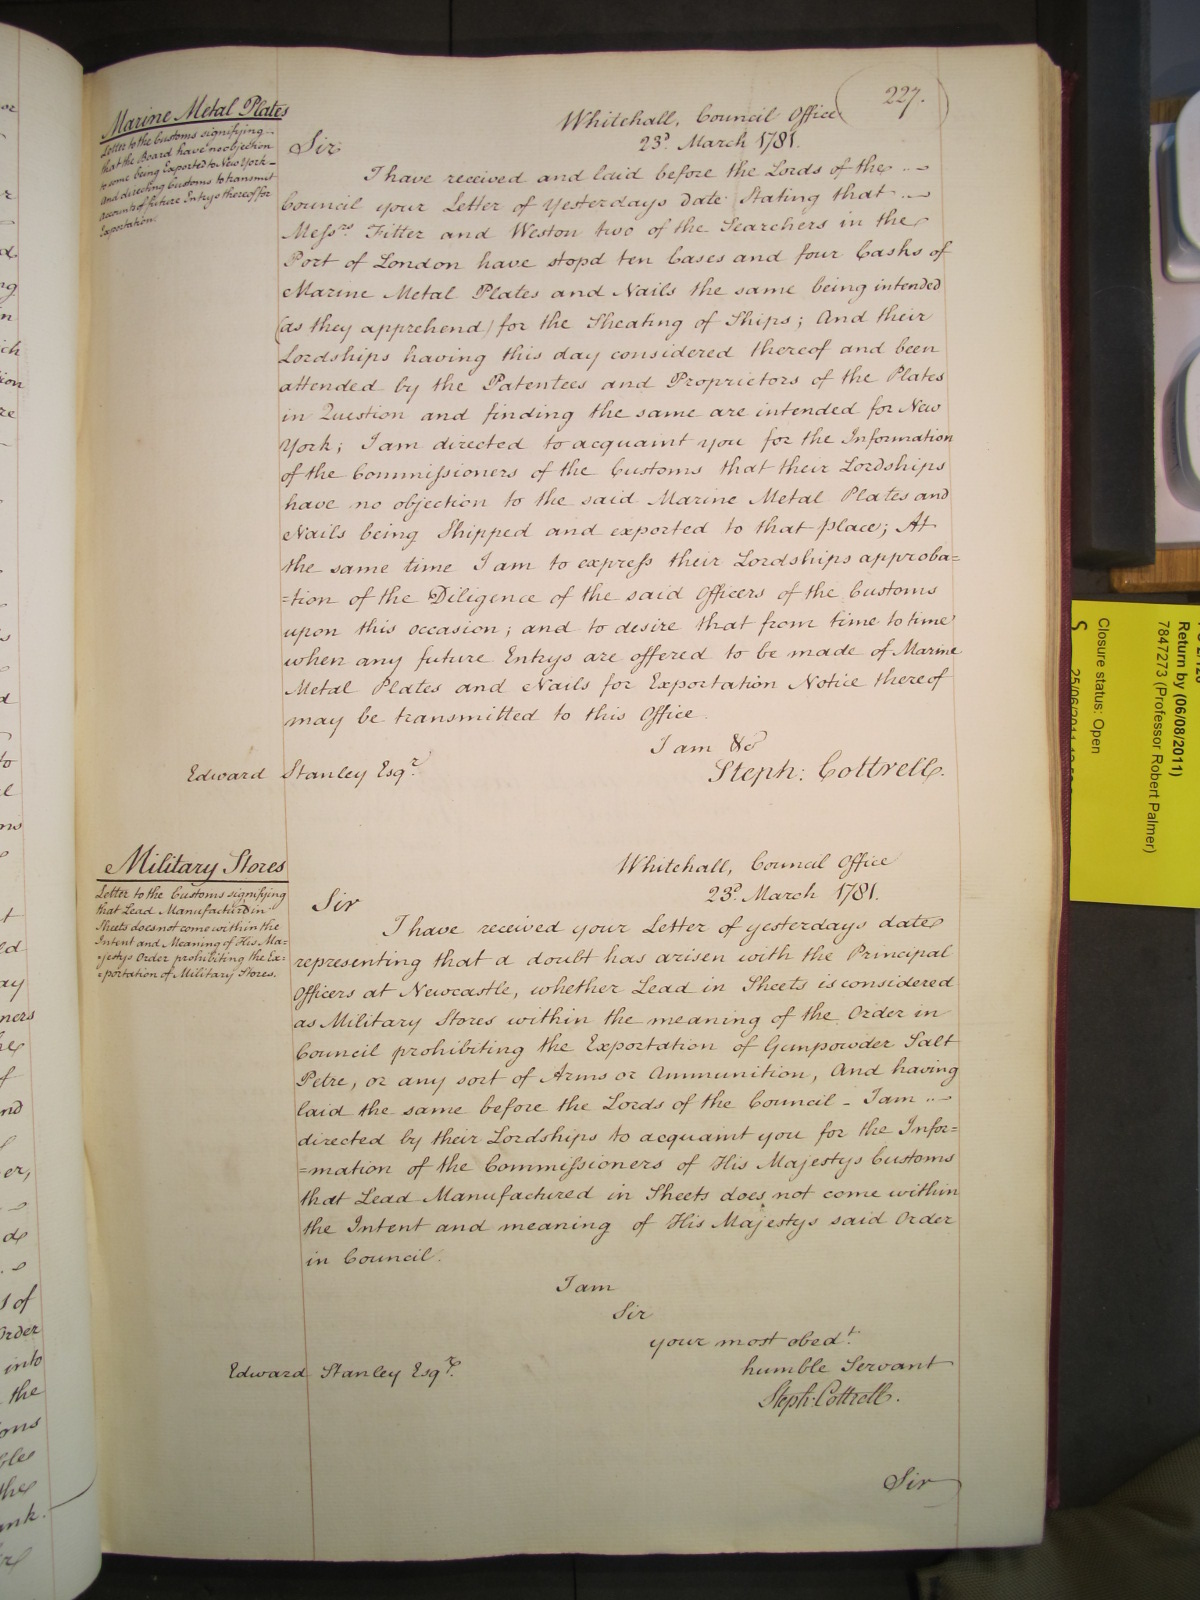 227.
Marine Metal Plates
Letter to the Customs signifying
that the Board have no objection
to some being Exported to New York
and directing Customs to transmit
accounts of future Entrys thereof for
Exportation.
Whitehall, Council Office
23d. March 1781.
Sir
I have received and laid before the Lords of the
Council your Letter of Yesterdays Date Stating that
Messrs. Fitter and Weston two of the Searchers in the
Port of London have stopd ten Cases and four Casks of
Marine Metal Plates and Nails the same being intended
(as they apprehend) for the Sheating of Ships; And their
Lordships having this day considered thereof and been
attended by the Patentees and Proprietors of the Plates
in Question and finding the same are intended for New
York; I am directed to acquaint you for the Information
of the Commissioners of the Customs that their Lordships
have no objection to the said Marine Metal Plates and
Nails being Shipped and exported to that place; At
the same time I am to express their Lordships approba=
=tion of the Diligence of the said Officers of the Customs
upon this occasion; and to desire that from time to time
when any future Entrys are offered to be made of Marine
Metal Plates and Nails for Exportation Notice thereof
may be transmitted to this Office.
I am &c
Edward Stanley Esqr.
Steph: Cottrell.
Military Stores
Letter to the Customs signifying
that Lead Manufactured in
Sheets does not come within the
Intent and Meaning of His Ma=
=jestys Order prohibiting the Ex=
=portation of Military Stores.
Whitehall, Council Office
23d. March 1781.
Sir
I have received your Letter of yesterdays date
representing that a doubt has arisen with the Principal
Officers at Newcastle, whether Lead in Sheets is considered
as Military Stores within the meaning of the Order in
Council prohibiting the Exportation of Gunpowder Salt
Petre, or any sort of Arms or Ammunition, And having
laid the same before the Lords of the Council - I am
directed by their Lordships to acquaint you for the Infor=
=mation of the Commissioners of His Majestys Customs
that Lead Manufactured in Sheets does not come within
the Intent and meaning of His Majestys said Order
in Council.
I am
Sir
your most obedt.
humble Servant
Edward Stanley Esqr.
Steph: Cottrell.
Sir
Return by (06/08/2011)
7847273 (Professor Robert Palmer)
Closure status: Open